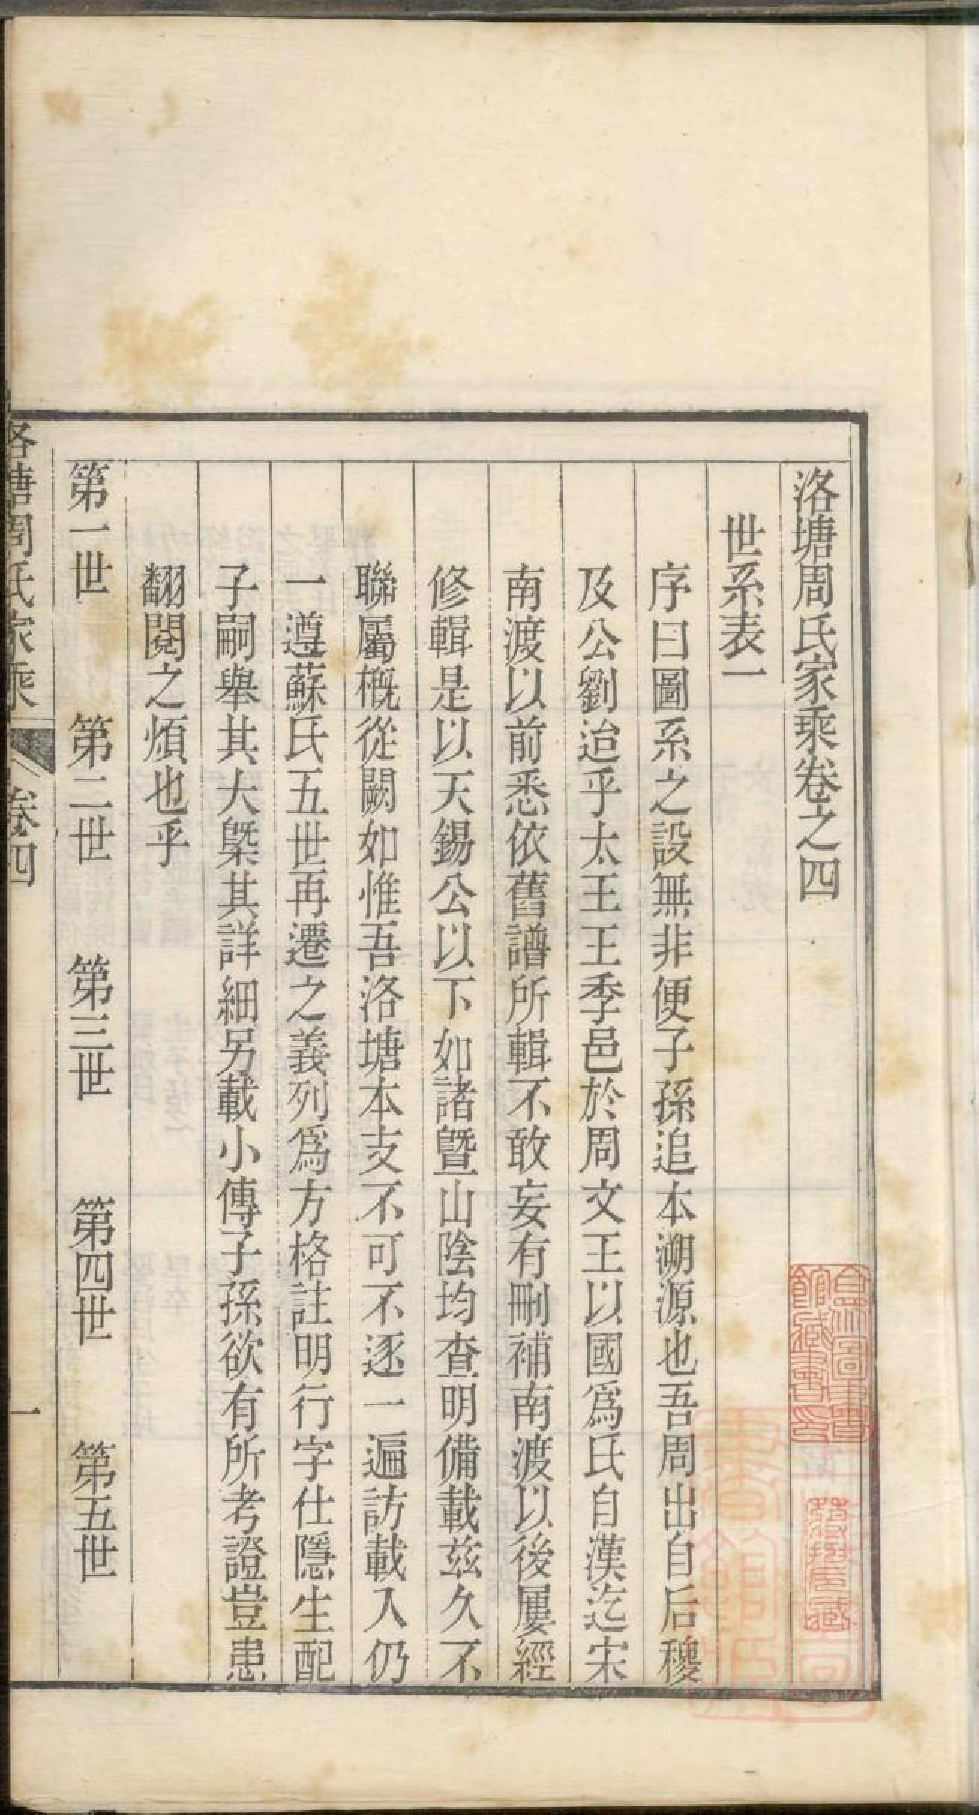 洛塘周氏家乘卷之四
世系表一
序曰圖系之設無非便子孫追本溯源也吾周出自后稷
及公劉迨乎太王王季邑於周文王以國爲氏自漢迄宋
南渡以前悉依舊譜所輯不敢妄有刪補南渡以後屢經
修輯是以天錫公以下如諸暨山陰均查明備載茲久不
聯屬概從闕如惟吾洛塘本支不可不逐一遍訪載入仍
一遵蘇氏五世再遷之義列爲方格註明行字仕隱生配
子嗣舉其大槩其詳細另載小傳子孫欲有所考證豈患
翻閱之煩也乎
第一世 第二世 第三世 第四世 第五世
洛塘周氏家乘 卷四 一